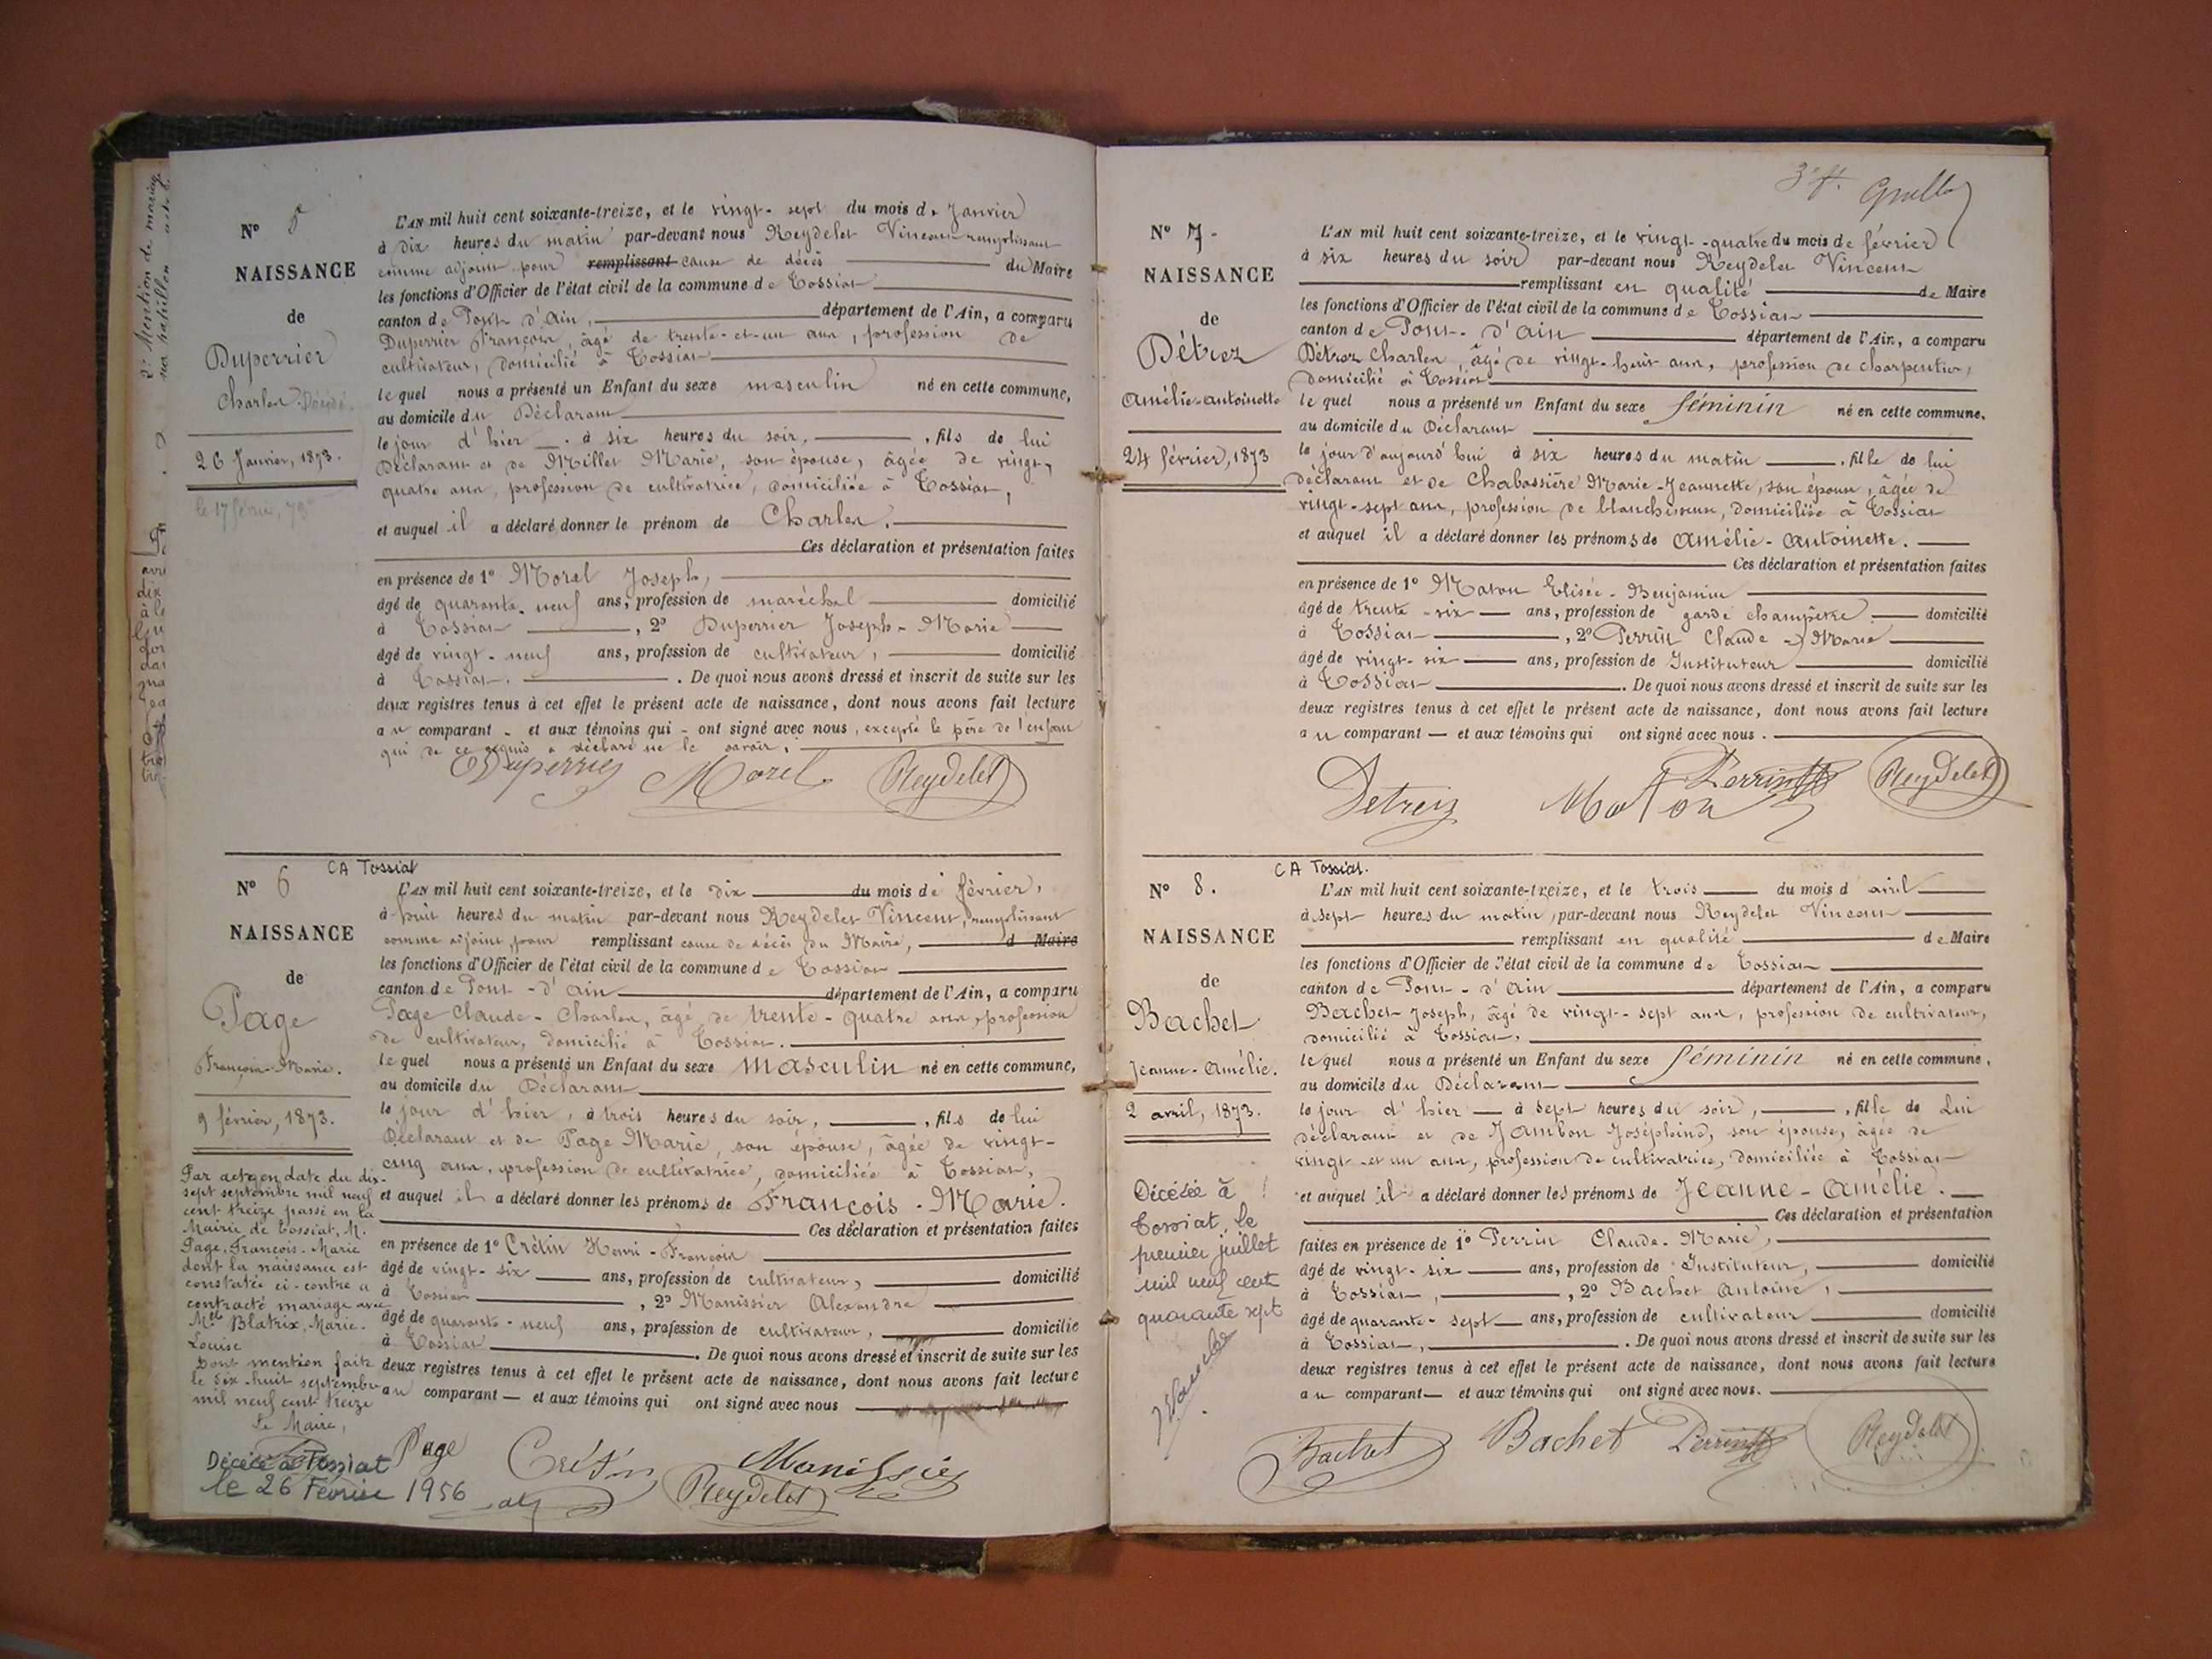 Nº 5
NAISSANCE
de
Duperrier
Charles. Décédé.
26 Janvier, 1873.
le 17 février, 73
L'AN mil huit cent soixante-treize, et le vingt-sept du mois de Janvier
à dix heures du matin par-devant nous Reydelet Vincent remplissant
comme adjoint, pour remplissant cause de décès du Maire
les fonctions d'Officier de l'état civil de la commune de Tossiat
canton de Pont d'Ain, département de l'Ain, a comparu
Duperrier François, âgé de trente-et-un ans, profession de
cultivateur, domicilié à Tossiat
lequel nous a présenté un Enfant du sexe masculin né en cette commune,
au domicile du Déclarant
le jour d'hier à six heures du soir, , fils de lui
Déclarant et de Millet Marie, son épouse, âgée de vingt-
quatre ans, profession de cultivatrice, domiciliée à Tossiat,
et auquel il a déclaré donner le prénom de Charles.
Ces déclaration et présentation faites
en présence de 1º Morel Joseph,
âgé de quarante-neuf ans, profession de maréchal domicilié
à Tossiat , 2º Duperrier Joseph-Marie
âgé de vingt-neuf ans, profession de cultivateur, domicilié
à Tossiat. . De quoi nous avons dressé et inscrit de suite sur les
deux registres tenus à cet effet le présent acte de naissance, dont nous avons fait lecture
au comparant - et aux témoins qui - ont signé avec nous, excepté le père de l'enfant
qui de ce requis a déclaré ne le savoir.
Duperrier Morel Reydelet
CA Tossiat
Nº 6
NAISSANCE
de
Page
François-Marie.
9 février, 1873.
Par acte en date du dix-
sept septembre mil neuf
cent treize passé en la
Mairie de Tossiat, M.
Page, François-Marie
dont la naissance est
constatée ci-contre a
contracté mariage avec
Mlle Blatrix, Marie-
Louise
Dont mention faite
le dix-huit septembre
mil neuf cent treize
Le Maire,
Décédé à Tossiat
le 26 Février 1956
L'AN mil huit cent soixante-treize, et le dix du mois de février,
à huit heures du matin par-devant nous Reydelet Vincent, remplissant
comme adjoint, pour remplissant cause de décès du Maire, d Maire
les fonctions d'Officier de l'état civil de la commune de Tossiat
canton de Pont-d'Ain département de l'Ain, a comparu
Page Claude-Charles, âgé de trente-quatre ans, profession
de cultivateur, domicilié à Tossiat.
lequel nous a présenté un Enfant du sexe masculin né en cette commune,
au domicile du Déclarant
le jour d'hier, à trois heures du soir, , fils de lui
Déclarant et de Page Marie, son épouse, âgée de vingt-
cinq ans, profession de cultivatrice, domiciliée à Tossiat,
et auquel il a déclaré donner les prénoms de François-Marie.
Ces déclaration et présentation faites
en présence de 1º Crétin Henri-François
âgé de vingt-six ans, profession de cultivateur, domicilié
à Tossiat , 2º Manissier Alexandre
âgé de quarante-neuf ans, profession de cultivateur, domicilié
à Tossiat . De quoi nous avons dressé et inscrit de suite sur les
deux registres tenus à cet effet le présent acte de naissance, dont nous avons fait lecture
au comparant — et aux témoins qui ont signé avec nous
Page Crétin Manissier
Reydelet
3e f. Grullo
Nº 7.
NAISSANCE
de
Détroz
Amélie-Antoinette
24 février, 1873
L'AN mil huit cent soixante-treize, et le vingt-quatre du mois de février
à six heures du soir par-devant nous Reydelet Vincent
remplissant en qualité de Maire
les fonctions d'Officier de l'état civil de la commune de Tossiat
canton de Pont-d'Ain département de l'Ain, a comparu
Détroz Charles, âgé de vingt-huit ans, profession de charpentier,
domicilié à Tossiat
lequel nous a présenté un Enfant du sexe féminin né en cette commune,
au domicile du Déclarant
le jour d'aujourd'hui à six heures du matin , fille de lui
déclarant et de Chabassière Marie-Jeannette, son épouse, âgée de
vingt-sept ans, profession de blanchisseuse, domiciliée à Tossiat
et auquel il a déclaré donner les prénoms de Amélie-Antoinette.
Ces déclaration et présentation faites
en présence de 1º Maton Elisée-Benjamin
âgé de trente-six ans, profession de garde champêtre domicilié
à Tossiat , 2º Perrin Claude-Marie
âgé de vingt-six ans, profession de Instituteur domicilié
à Tossiat . De quoi nous avons dressé et inscrit de suite sur les
deux registres tenus à cet effet le présent acte de naissance, dont nous avons fait lecture
au comparant — et aux témoins qui ont signé avec nous.
Detroz Maton Perrin Reydelet
CA Tossiat.
Nº 8.
NAISSANCE
de
Bachet
Jeanne-Amélie.
2 avril, 1873.
Décédée à
Tossiat, le
premier juillet
mil neuf cent
quarante sept
L'AN mil huit cent soixante-treize, et le trois du mois d'avril
à sept heures du matin, par-devant nous Reydelet Vincent
remplissant en qualité de Maire
les fonctions d'Officier de l'état civil de la commune de Tossiat
canton de Pont-d'Ain département de l'Ain, a comparu
Bachet Joseph, âgé de vingt-sept ans, profession de cultivateur,
domicilié à Tossiat.
lequel nous a présenté un Enfant du sexe féminin né en cette commune,
au domicile du Déclarant
le jour d'hier — à sept heures du soir, , fille de Lui
déclarant et de Jambon Joséphine, son épouse, âgée de
vingt-et un ans, profession de cultivatrice, domiciliée à Tossiat
et auquel il a déclaré donner les prénoms de Jeanne-Amélie.
Ces déclaration et présentation
faites en présence de 1º Perrin Claude-Marie,
âgé de vingt-six ans, profession de Instituteur, domicilié
à Tossiat, , 2º Bachet Antoine,
âgé de quarante-sept ans, profession de cultivateur domicilié
à Tossiat, . De quoi nous avons dressé et inscrit de suite sur les
deux registres tenus à cet effet le présent acte de naissance, dont nous avons fait lecture
au comparant — et aux témoins qui ont signé avec nous.
Bachet Bachet Perrin Reydelet